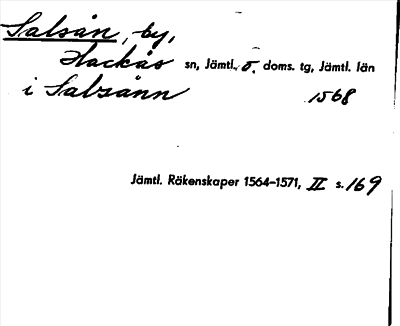 Salsån, by,
Hackås sn, Jämtl. ö. doms. tg, Jämtl. län
i Salzånn 1568
Jämtl. Räkenskaper 1564-1571, II s. 169